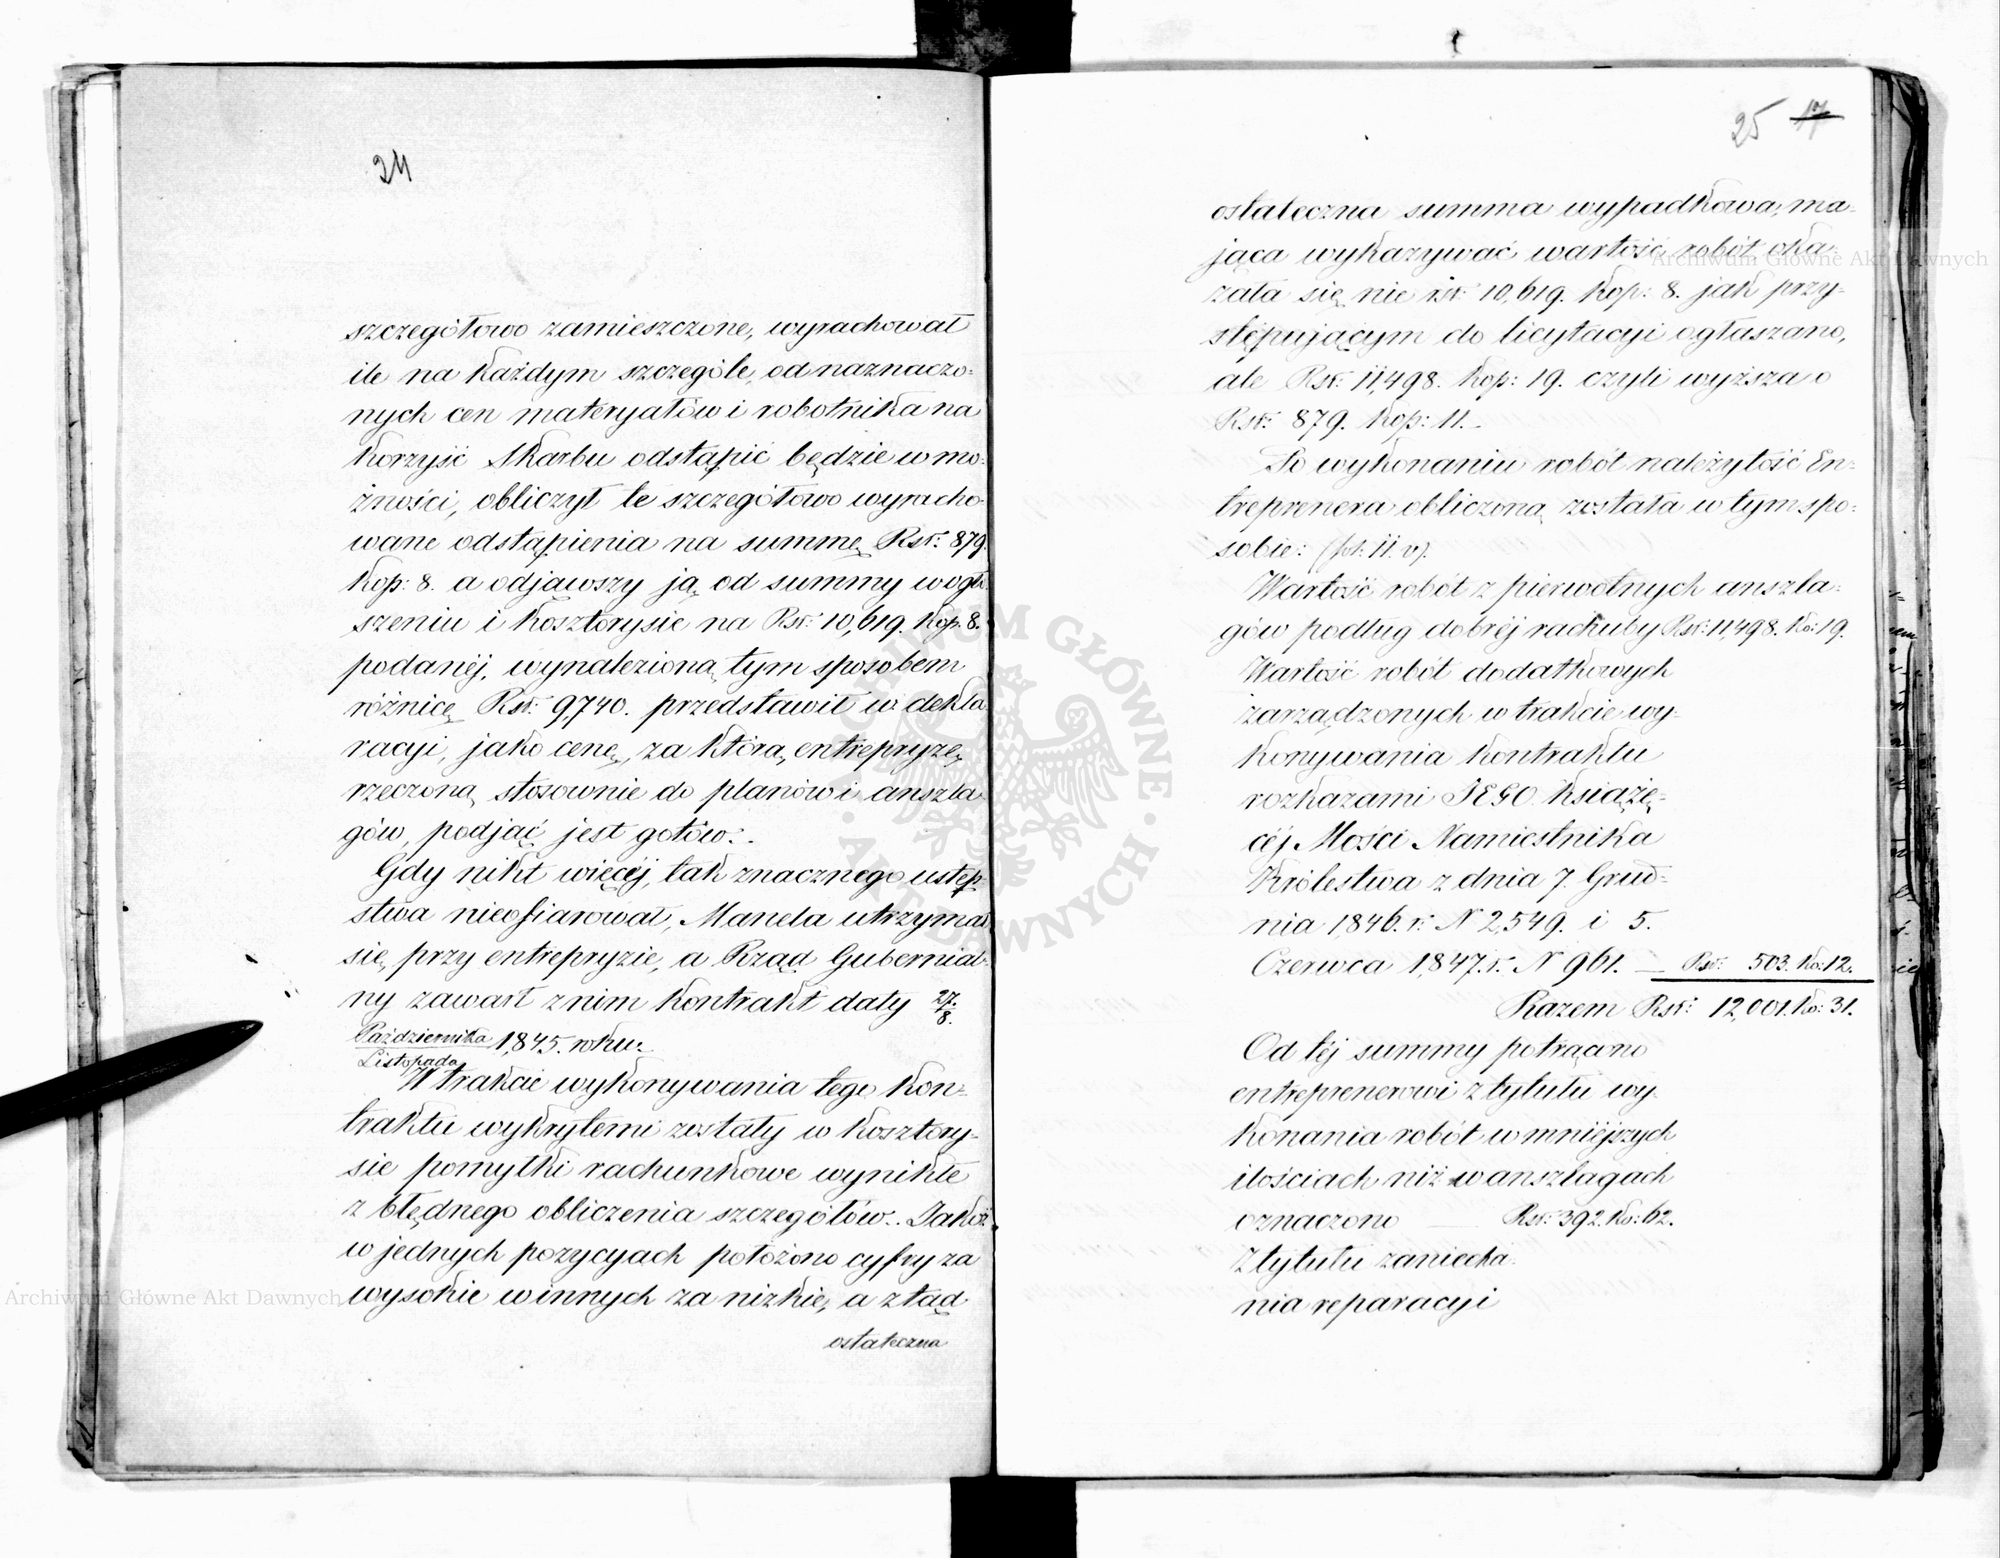 24
szczegółowo zamieszczone, wyrachował
ile na każdym szczególe, od naznaczo=
nych cen materyałów i robotnika na
korzyść Skarbu odstąpić będzie w mo=
żności, obliczył te szczegółowo wyracho=
wane odstąpienia na summę Rsr: 879.
Kop: 8. a odjąwszy ją od summy w ogło
szeniu i kosztorysie na Rsr: 10,619. Kop. 8.
podanéj, wynalezioną tym sposobem
różnicę Rsr: 9,740. przedstawił w dekla
racyi, jako cenę, za którą entrepryzę
rzeczoną stosownie do planów i anszla
gów, podjąć jest gotów.
Gdy nikt więcéj, tak znacznego ustęp=
stwa nieofiarował, Manela utrzymał
się przy entrepryzie, a Rząd Gubernial=
ny zawarł z nim kontrakt daty 27/8.
Października/Listopada 1,845. roku.
W trakcie wykonywania tego kon=
traktu wykrytemi zostały w kosztory=
sie pomyłki rachunkowe wynikłe
z błędnego obliczenia szczegółów. Jakoż
w jednych pozycyach położono cyfry za
wysokie w innych za nizkie, a ztąd
ostateczna
25 17
ostateczna summa wypadkowa, ma=
jąca wykazywać wartość robót oka=
zała się nie rsr: 10,619. Kop: 8. jak przy=
stępującym do licytacyi ogłaszano,
ale Rsr: 11,498. Kop: 19. czyli wyższa o
Rsr: 879. Kop: 11.
Po wykonaniu robót należytość En=
treprenera obliczoną została w tym spo=
sobie: (fol: 11. v).
Wartość robót z pierwotnych anszla=
gów podług dobréj rachuby Rsr: 11,498. Ko: 19.
Wartość robót dodatkowych
zarządzonych w trakcie wy=
konywania kontraktu
rozkazami JEGO Książę=
céj Mości Namiestnika
Królestwa z dnia 7. Grud=
nia 1,846. r: N 2,549. i 5.
Czerwca 1,847. r. N 961. — Rsr: 503. Ko: 12.
Razem Rsr: 12,001. Ko: 31.
Od téj summy potrącono
entreprenerowi z tytułu wy=
konania robót w mniéjszych
ilościach niż w anszlagach
oznaczono — Rsr: 392. Ko: 62.
Z tytułu zaniecha=
nia reparacyi
Archiwum Główne Akt Dawnych
Archiwum Główne Akt Dawnych
ARCHIWUM GŁÓWNE · AKT DAWNYCH ·